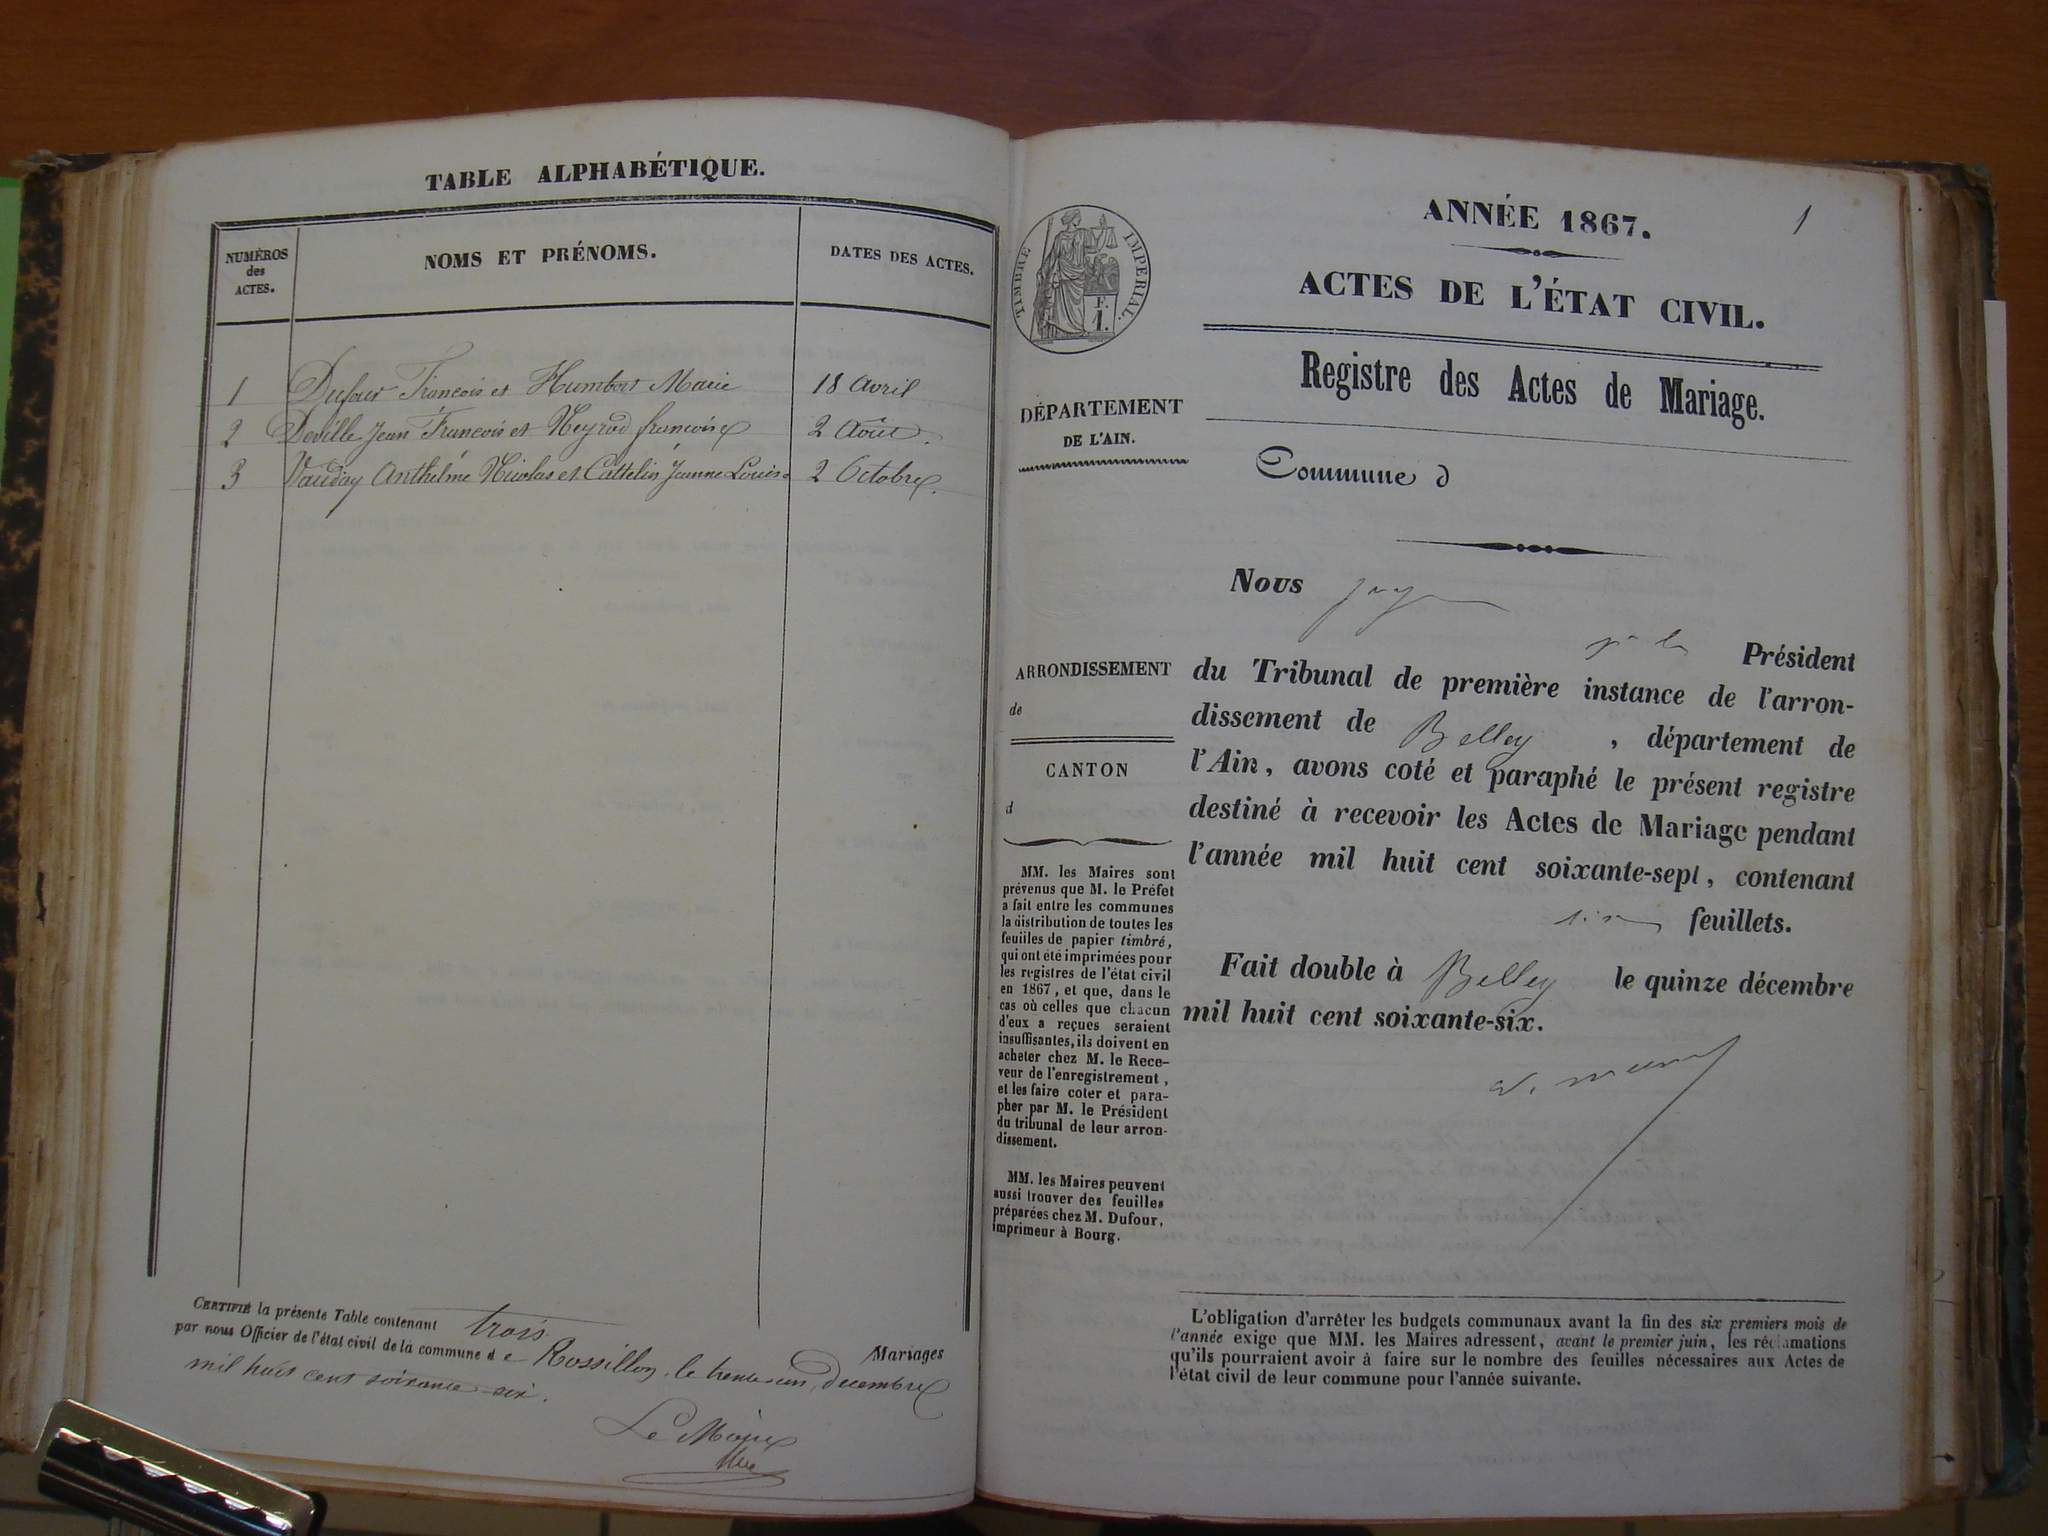 TABLE ALPHABÉTIQUE.
NUMÉROS
des
ACTES.
NOMS ET PRÉNOMS.
DATES DES ACTES.
1 Dufour François et Humbert Marie 18 Avril
2 Deville Jean François et Neyrod françoise 2 Août.
3 Vauday Anthelme Nicolas et Cattelin Jeanne Louise 2 Octobre.
CERTIFIÉ la présente Table contenant trois Mariages
par nous Officier de l'état civil de la commune de Rossillon, le trente un, Decembre
mil huit cent soixante-six.
Le Maire
ANNÉE 1867.
1
ACTES DE L'ÉTAT CIVIL.
Registre des Actes de Mariage.
TIMBRE IMPÉRIAL.
F.
1.
DÉPARTEMENT
DE L'AIN.
Commune d
ARRONDISSEMENT
de
CANTON
d
MM. les Maires sont
prévenus que M. le Préfet
a fait entre les communes
la distribution de toutes les
feuilles de papier timbré,
qui ont été imprimées pour
les registres de l'état civil
en 1867, et que, dans le
cas où celles que chacun
d'eux a reçues seraient
insuffisantes, ils doivent en
acheter chez M. le Rece-
veur de l'enregistrement,
et les faire coter et para-
pher par M. le Président
du tribunal de leur arron-
dissement.
MM. les Maires peuvent
aussi trouver des feuilles
préparées chez M. Dufour,
imprimeur à Bourg.
Nous
Président
du Tribunal de première instance de l'arron-
dissement de Belley, département de
l'Ain, avons coté et paraphé le présent registre
destiné à recevoir les Actes de Mariage pendant
l'année mil huit cent soixante-sept, contenant
six feuillets.
Fait double à Belley le quinze décembre
mil huit cent soixante-six.
L'obligation d'arrêter les budgets communaux avant la fin des six premiers mois de
l'année exige que MM. les Maires adressent, avant le premier juin, les réclamations
qu'ils pourraient avoir à faire sur le nombre des feuilles nécessaires aux Actes de
l'état civil de leur commune pour l'année suivante.